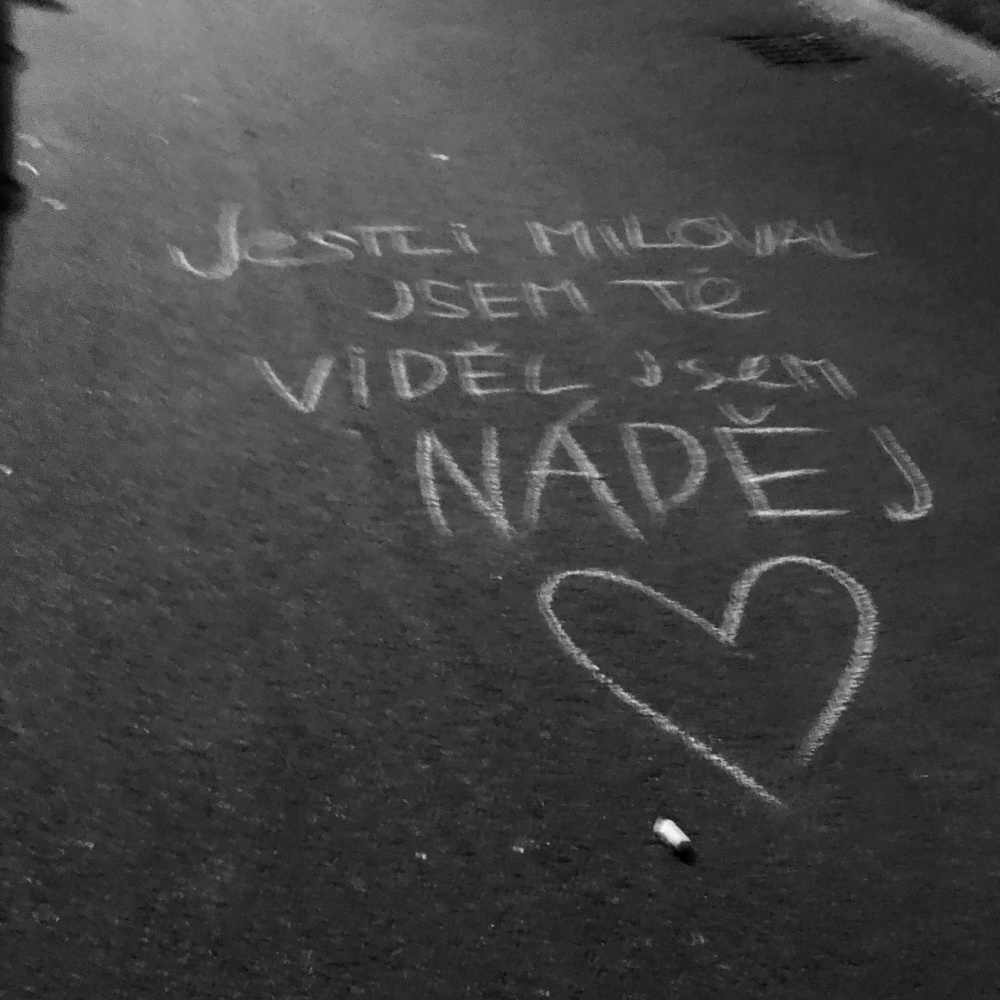 JESTLi MiLOVAL
JSEM TĚ
ViDĚL jsem
NÁDĚJ